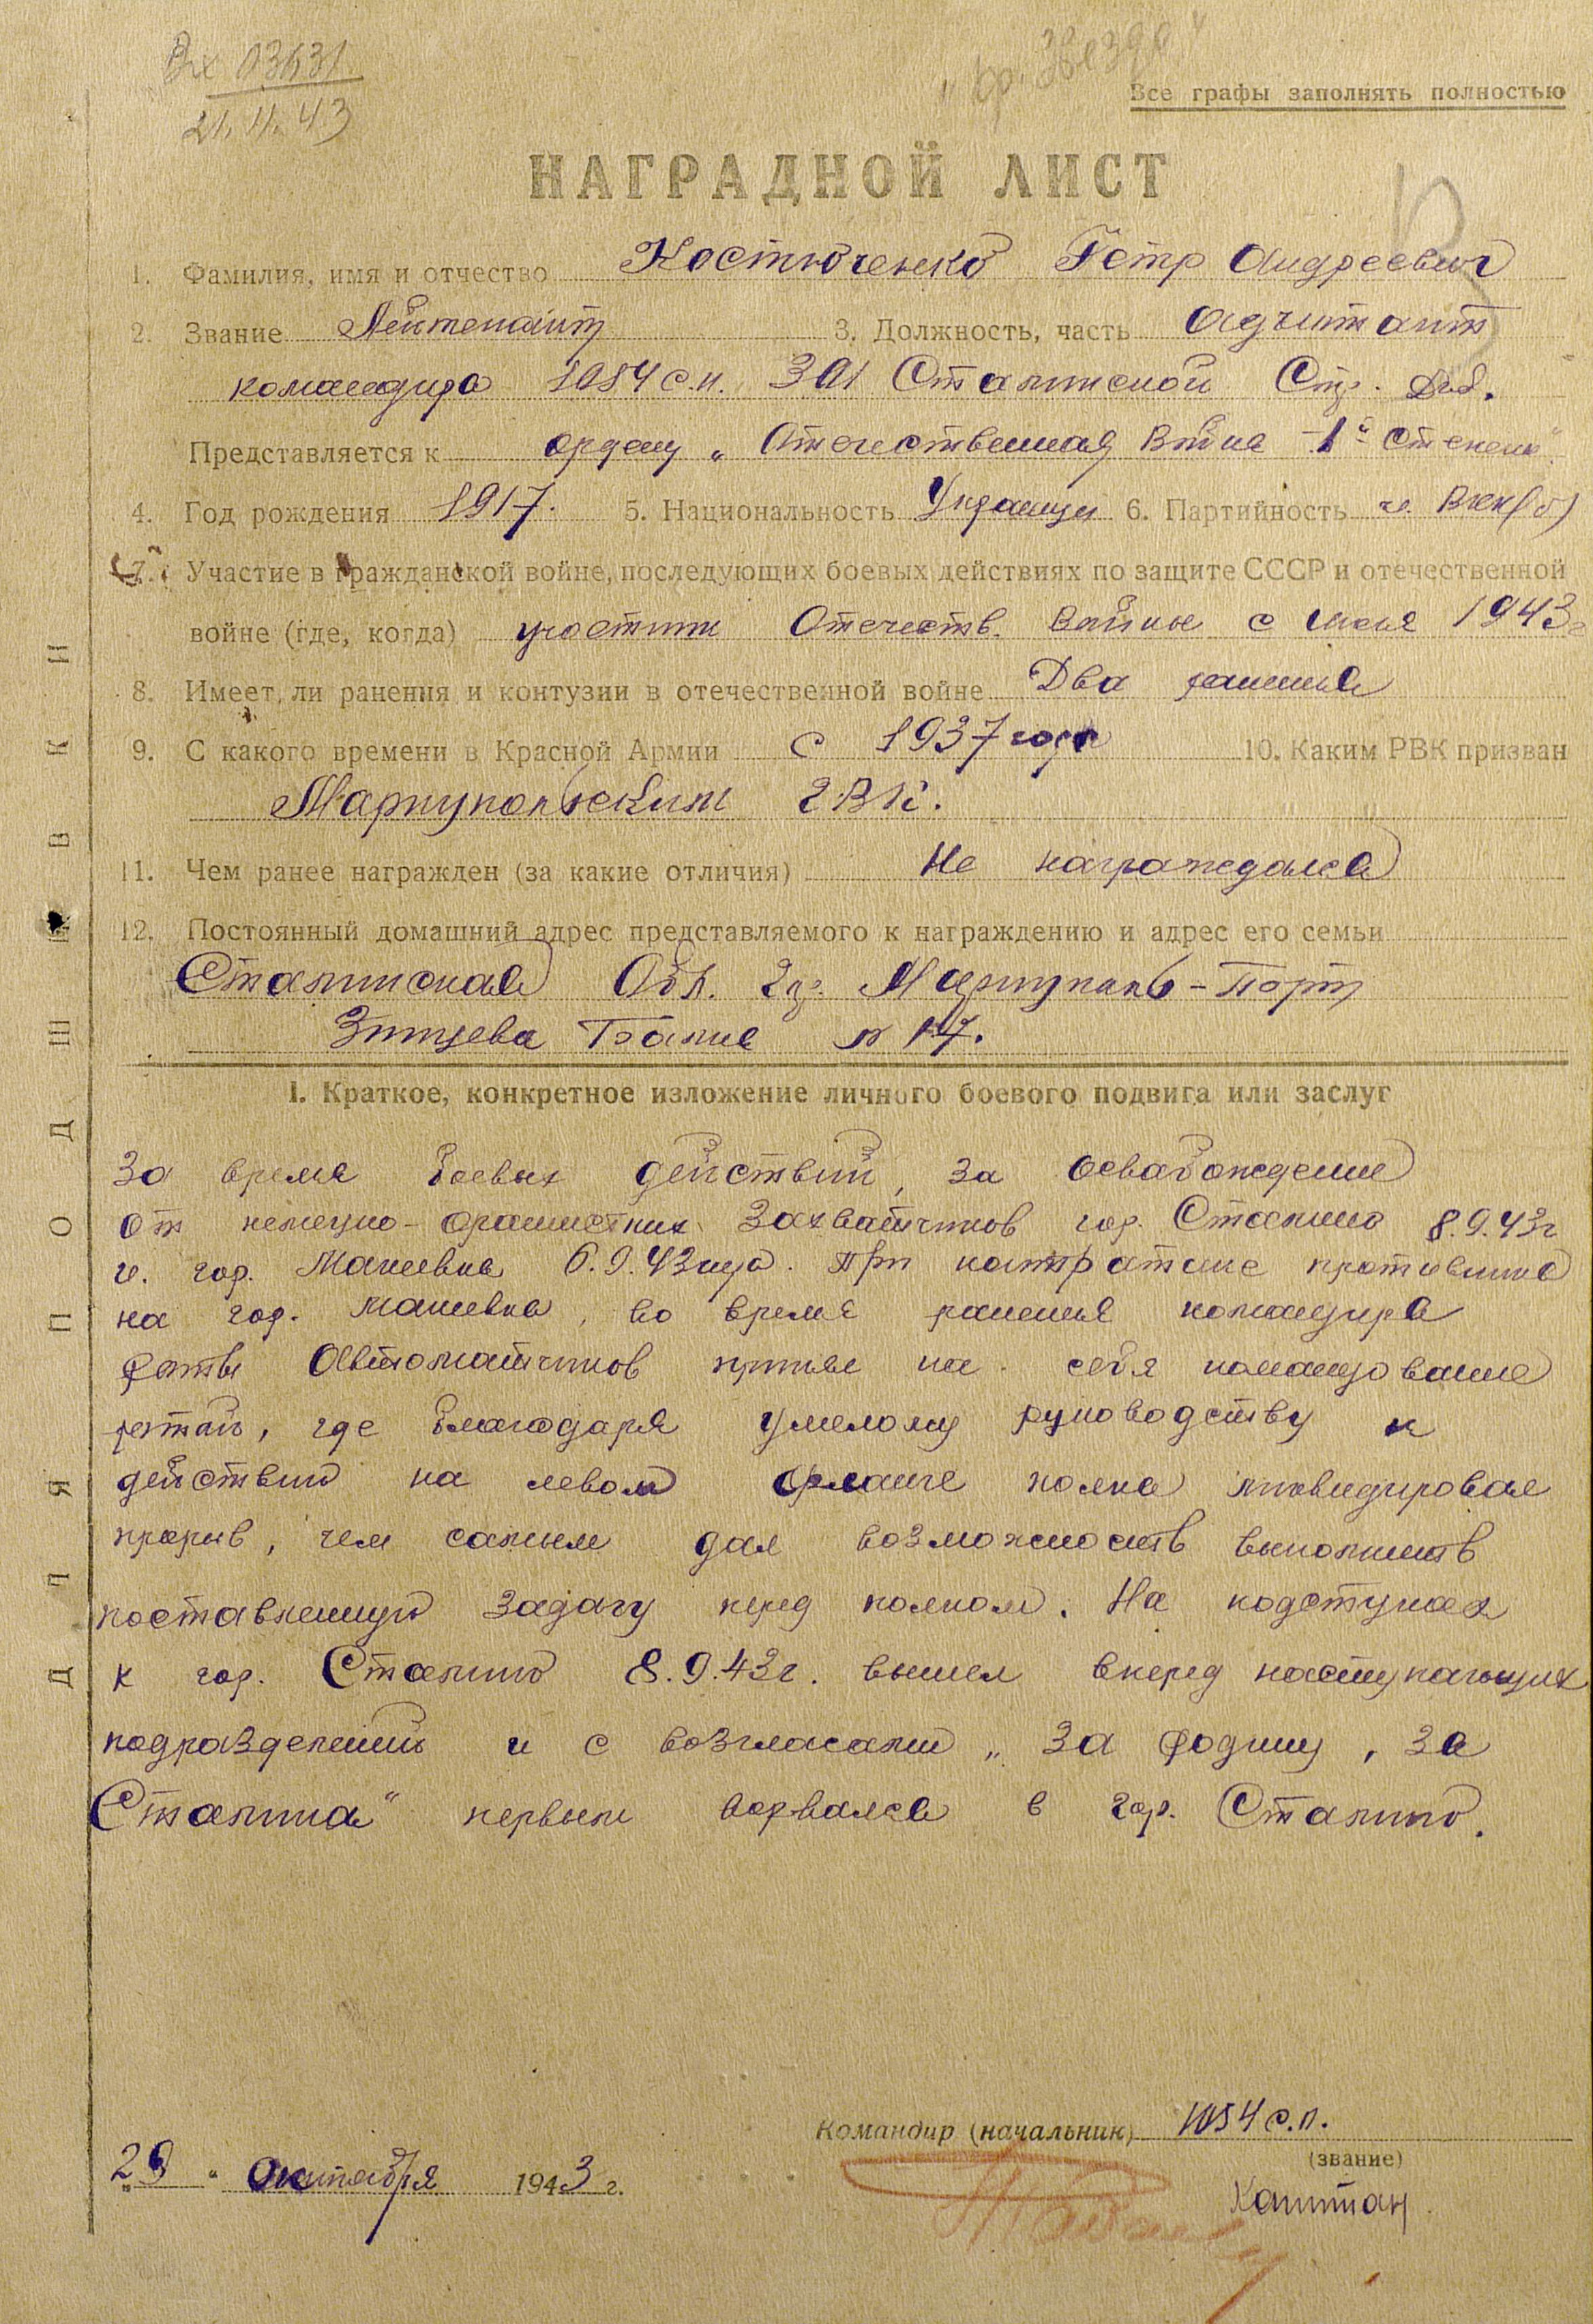 Вх 03631
21.11.43
"Кр. Звезда"
Все графы заполнять полностью
НАГРАДНОЙ ЛИСТ
1. Фамилия, имя и отчество Костюченко Петр Андреевич
2. Звание Лейтенант 3. Должность, часть Адъютант
командира 1054 с.п. 301 Сталинской Стр. Див.
Представляется к ордену „Отечественная Война 1й степени"
4. Год рождения 1917. 5. Национальность Украинец 6. Партийность ч. ВКП(б)
7. Участие в гражданской войне, последующих боевых действиях по защите СССР и отечественной
войне (где, когда) участник Отечеств. Войны с 1943г
8. Имеет ли ранения и контузии в отечественной войне Два ранения
9. С какого времени в Красной Армии с 1937 года 10. Каким РВК призван
Мариупольским ГВК.
11. Чем ранее награжден (за какие отличия) Не награждался
12. Постоянный домашний адрес представляемого к награждению и адрес его семьи
Сталинская Обл. гор. Мариуполь-Порт
Балка № 17.
I. Краткое, конкретное изложение личного боевого подвига или заслуг
За время боевых действий, за освабождение
от немецко-фашистких захватчиков гор. Сталино 8.9.43г
и. гор. Макеевка 6.9.43 года. При контратаке противника
на гор. Макеевка, во время ранения командира
роты Автоматчиков принял на себя командование
ротой, где благодаря умелому руководству и
действий на левом фланге полка ликвидировал
прорыв, чем самым дал возможность выполнить
поставленную задачу перед полком. На подступах
к гор. Сталино 8.9.43г. вышел вперед наступающих
подразделений и с возгласами „За Родину, за
Сталина" первым ворвался в гор. Сталино.
Командир (начальник) 1054 с.п.
(звание)
Капитан
„29" Октября 1943 г.
ДЛЯ ПОДШИВКИ